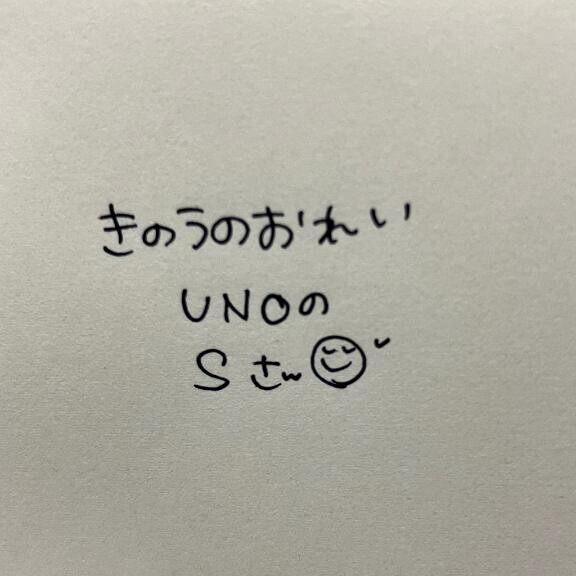 きのうのおれい
UNOの
Sさん